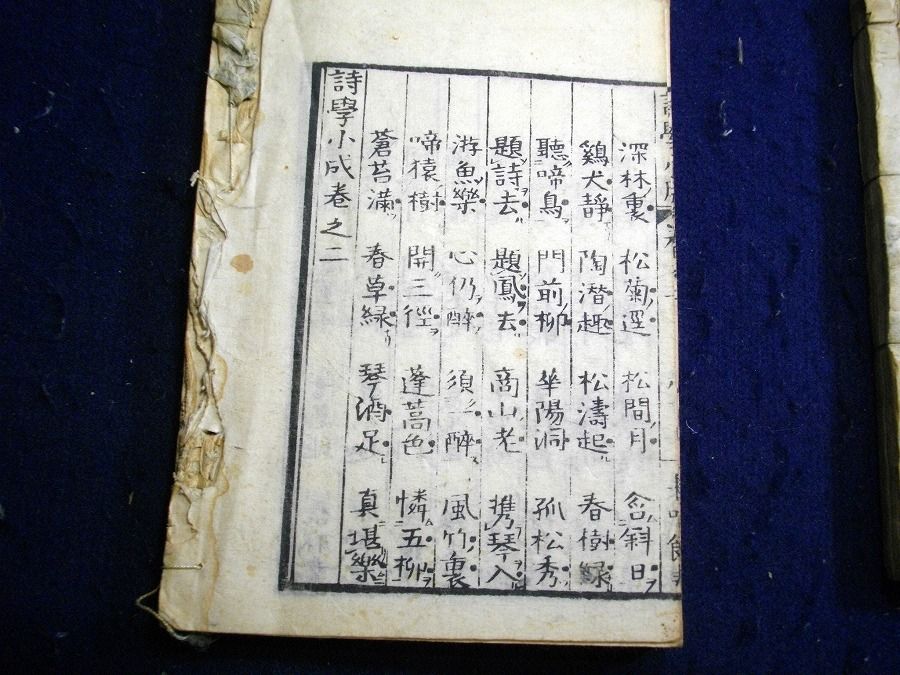 深林裏 松菊逕 松間月 含斜日
鷄犬静 陶潜趣 松濤起 春樹緑
聽啼鳥 門前柳 華陽洞 孤松秀
題詩去 題鳳去 商山老 携琴入
游魚樂 心仍醉 須一醉 風竹裏
啼猿樹 開三徑 蓬蒿色 憐五柳
蒼苔滿 春草緑 琴酒足 真堪樂
詩學小成卷之二